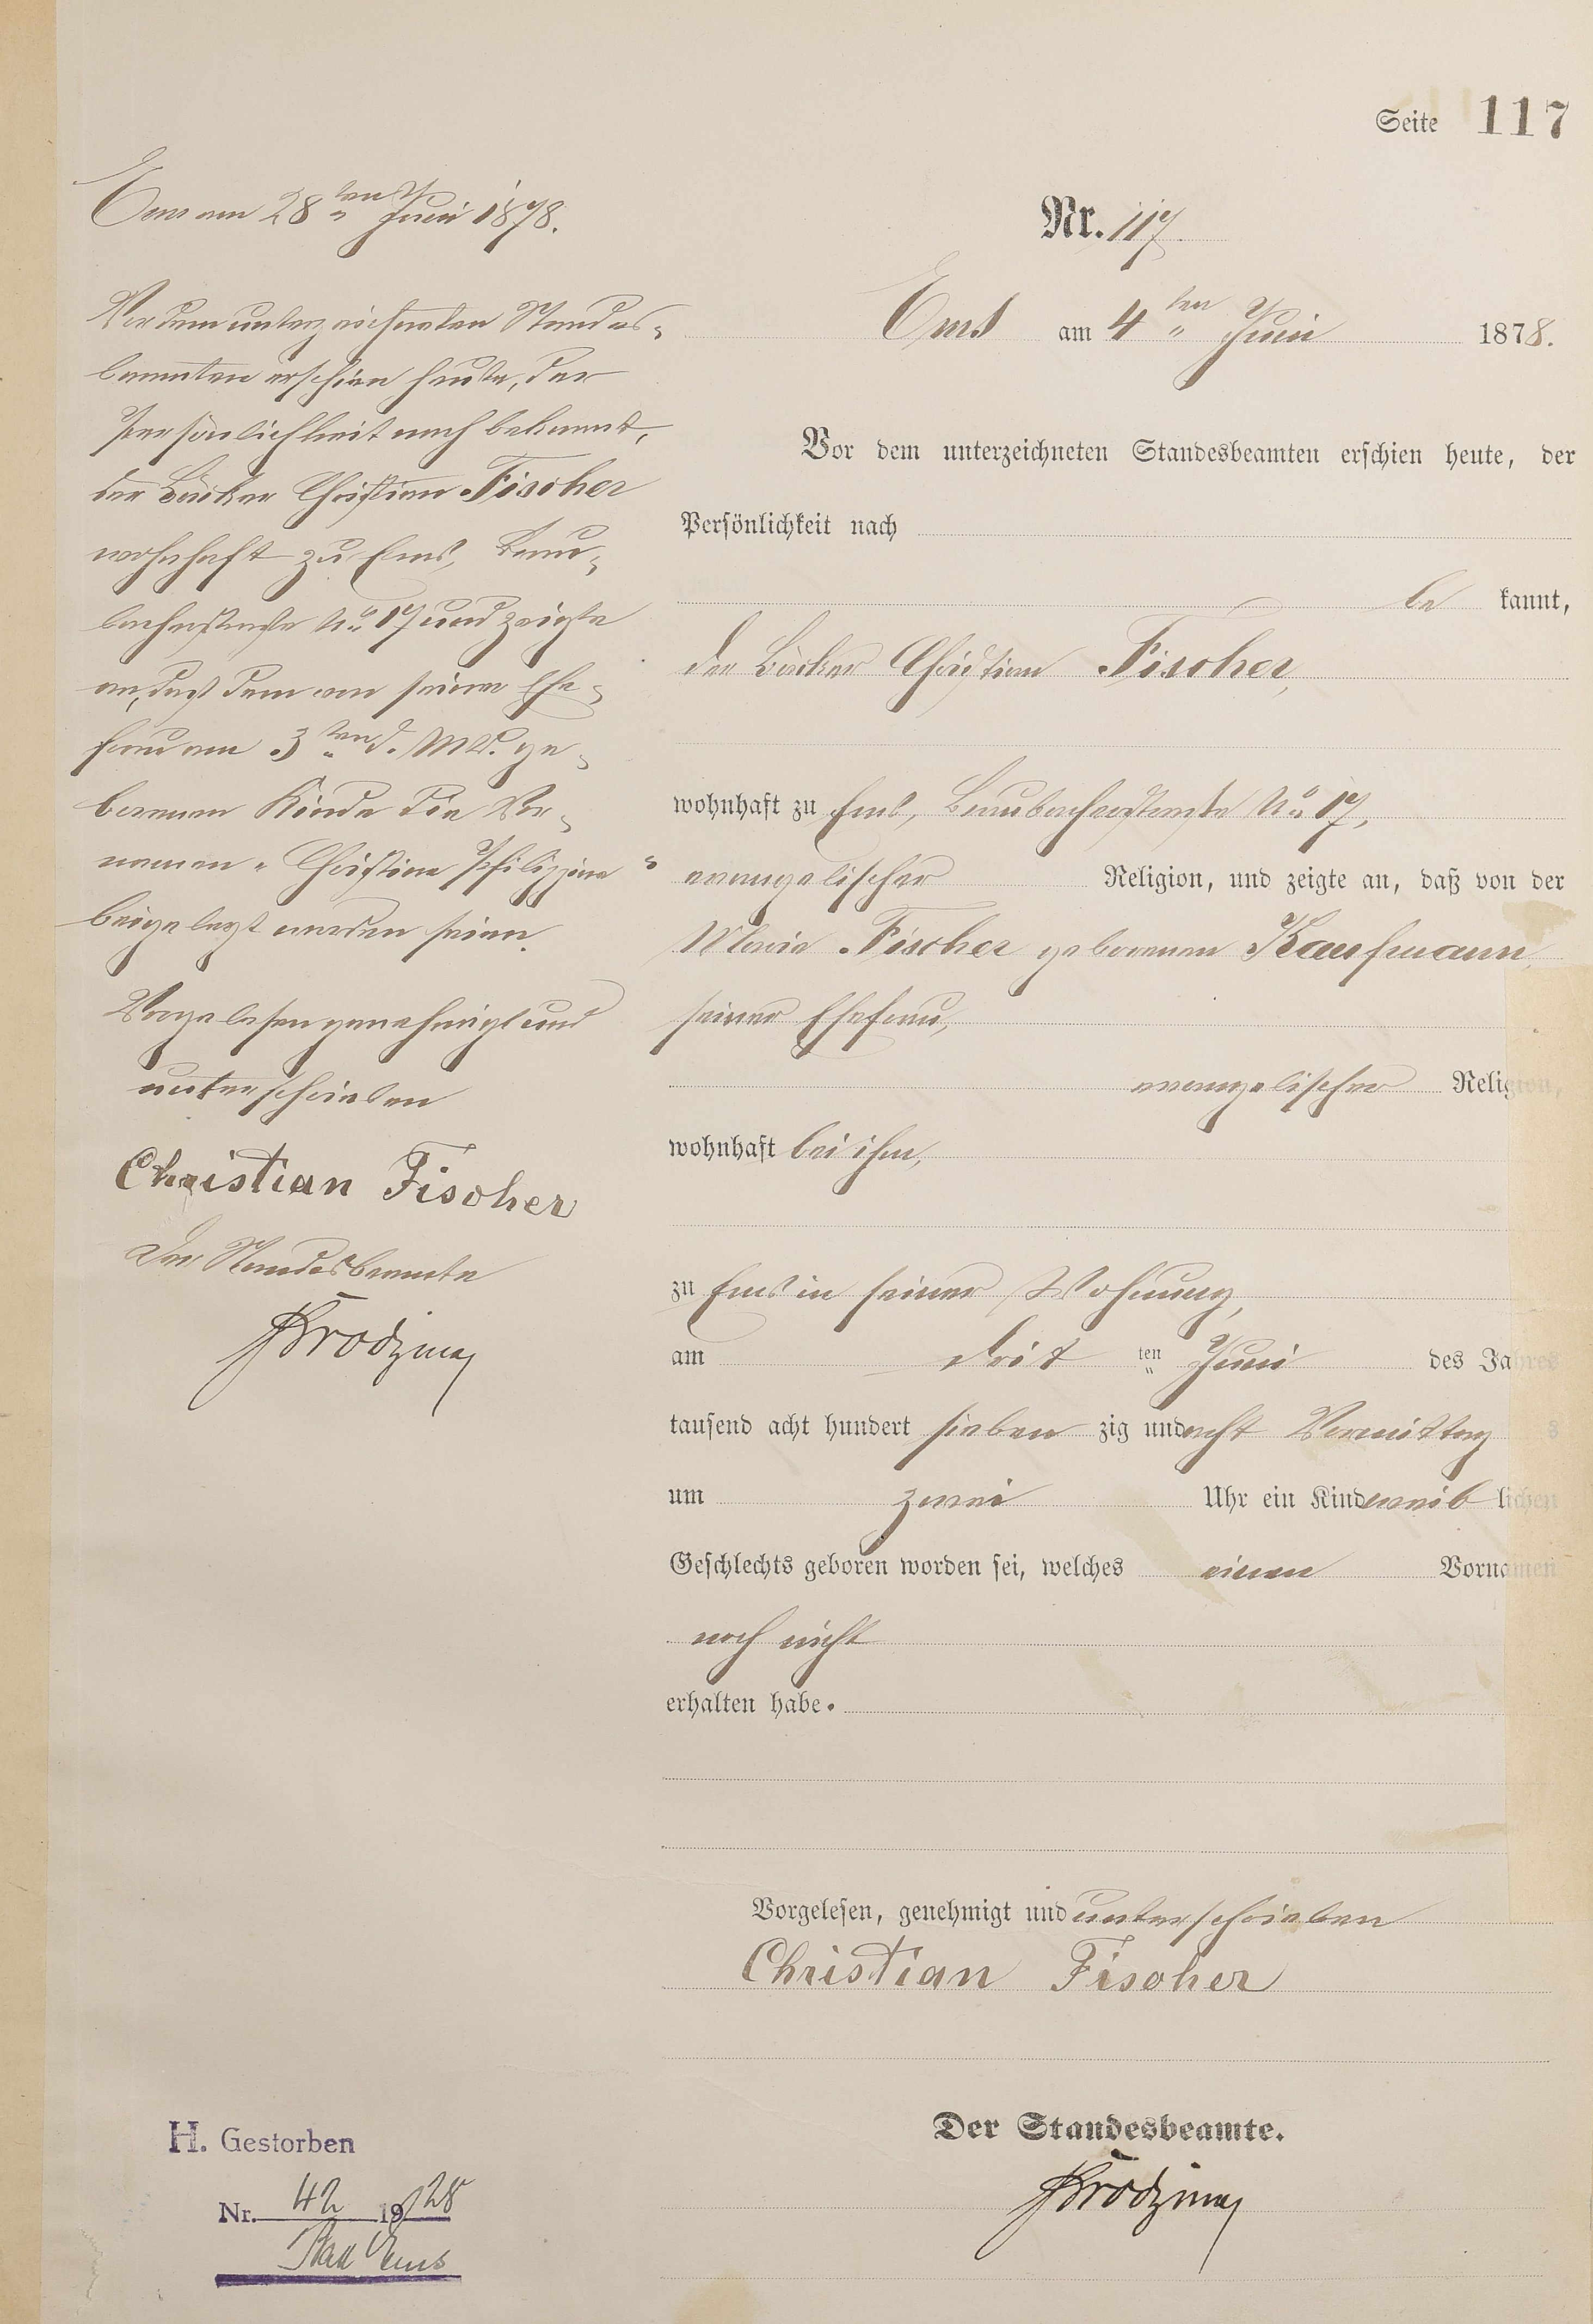 Seite 117
Ems am 28ten Juni 1878.
Vor dem unterzeichneten Standes-
beamten erschien heute, der
Persönlichkeit nach bekannt,
der Bäcker Christian Fischer
wohnhaft zu Ems, Brau-
bacherstraße No 17 und zeigte
an, daß dem von seiner Ehe-
frau am 3ten d. Mts. ge-
borenen Kinde die Vor-
namen "Christine Philippine"
beigelegt worden seien.
Vorgelesen genehmigt und
unterschrieben
Christian Fischer
Der Standesbeamte
Nr. 117.
Ems am 4ten Juni 1878.
Vor dem unterzeichneten Standesbeamten erschien heute, der
Persönlichkeit nach
be kannt,
der Bäcker Christian Fischer,
wohnhaft zu Ems, Braubacherstraße No 17,
evangelischer Religion, und zeigte an, daß von der
Marie Fischer geborenen Kaufmann,
seiner Ehefrau,
evangelischer Religion,
wohnhaft bei ihm,
zu Ems in seiner Wohnung,
am drit ten Juni des Jahres
tausend acht hundert sieben zig und acht Vormittag s
um zwei Uhr ein Kind weib lichen
Geschlechts geboren worden sei, welches einen Vornamen
noch nicht
erhalten habe.
Vorgelesen, genehmigt und unterschrieben
Christian Fischer
Der Standesbeamte.
H. Gestorben
Nr. 42 1928
Bad Ems